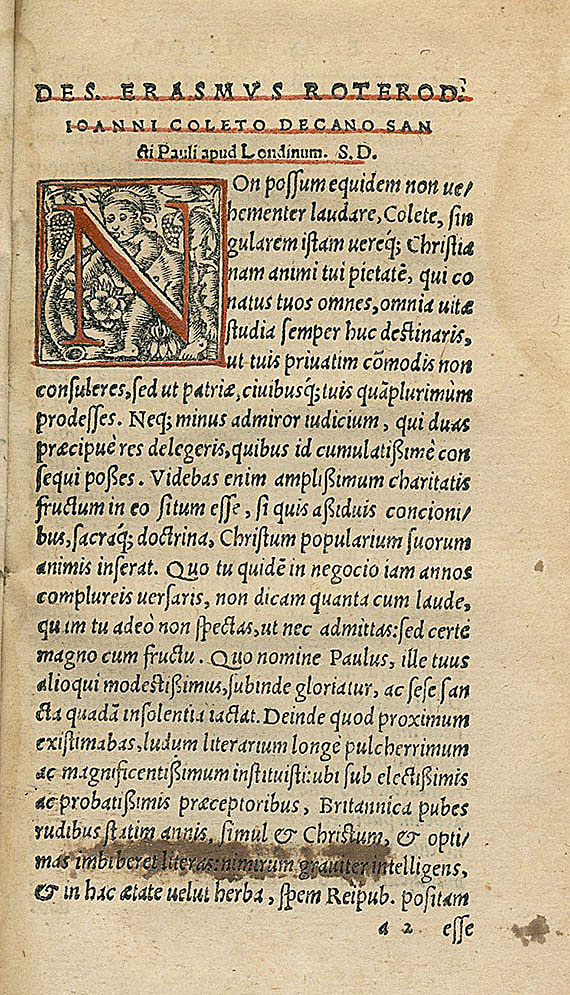 DES. ERASMVS ROTEROD.
IOANNI COLETO DECANO SAN
cti Pauli apud Londinum. S. D.
NOn possum equidem non ue/
hementer laudare, Colete, sin
gularem istam uereq́; Christia
nam animi tui pietatē, qui co
natus tuos omnes, omnia uitæ
studia semper huc destinaris,
ut tuis priuatim cōmodis non
consuleres, sed ut patriæ, ciuibusq́; tuis quāplurimùm
prodesses. Neq; minus admiror iudicium, qui duas
præcipuè res delegeris, quibus id cumulatißimè con
sequi poßes. Videbas enim amplißimum charitatis
fructum in eo situm esse, si quis aßiduis concioni/
bus, sacraq́; doctrina, Christum popularium suorum
animis inserat. Quo tu quidē in negocio iam annos
complureis uersaris, non dicam quanta cum laude,
quam tu adeò non spectas, ut nec admittas: sed certè
magno cum fructu. Quo nomine Paulus, ille tuus
alioqui modestißimus, subinde gloriatur, ac sese san
cta quadā insolentia iactat. Deinde quod proximum
existimabas, ludum literarium longè pulcherrimum
ac magnificentißimum instituisti: ubi sub electißimis
ac probatißimis præceptoribus, Britannica pubes
rudibus statim annis, simul & Christum, & opti/
mas imbiberet literas: nimirum grauiter intelligens,
& in hac ætate uelut herba, spem Reipub. positam
a 2 esse